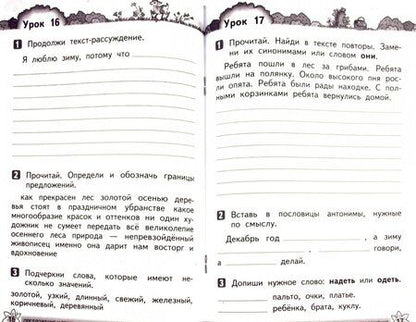 Урок 16
1 Продолжи текст-рассуждение.
Я люблю зиму, потому что
2 Прочитай. Определи и обозначь границы
предложений.
как прекрасен лес золотой осенью дере-
вья стоят в праздничном убранстве какое
многообразие красок и оттенков ни один ху-
дожник не сумеет передать всё великолепие
осеннего леса природа — непревзойдённый
живописец именно она дарит нам восторг и
вдохновение
3 Подчеркни слова, которые имеют не-
сколько значений.
золотой, узкий, длинный, свежий, железный,
коричневый, деревянный
16
Урок 17
1 Прочитай. Найди в тексте повторы. Заме-
ни их синонимами или словом они.
Ребята пошли в лес за грибами. Ребята
вышли на полянку. Около высокого пня рос-
ли опята. Ребята были рады находке. С пол-
ными корзинками ребята вернулись домой.
2 Вставь в пословицы антонимы, нужные
по смыслу.
Декабрь год , а зиму
. говори,
а делай.
3 Допиши нужное слово: надеть или одеть.
пальто, очки, платье.
ребёнка, брата, куклу.
17